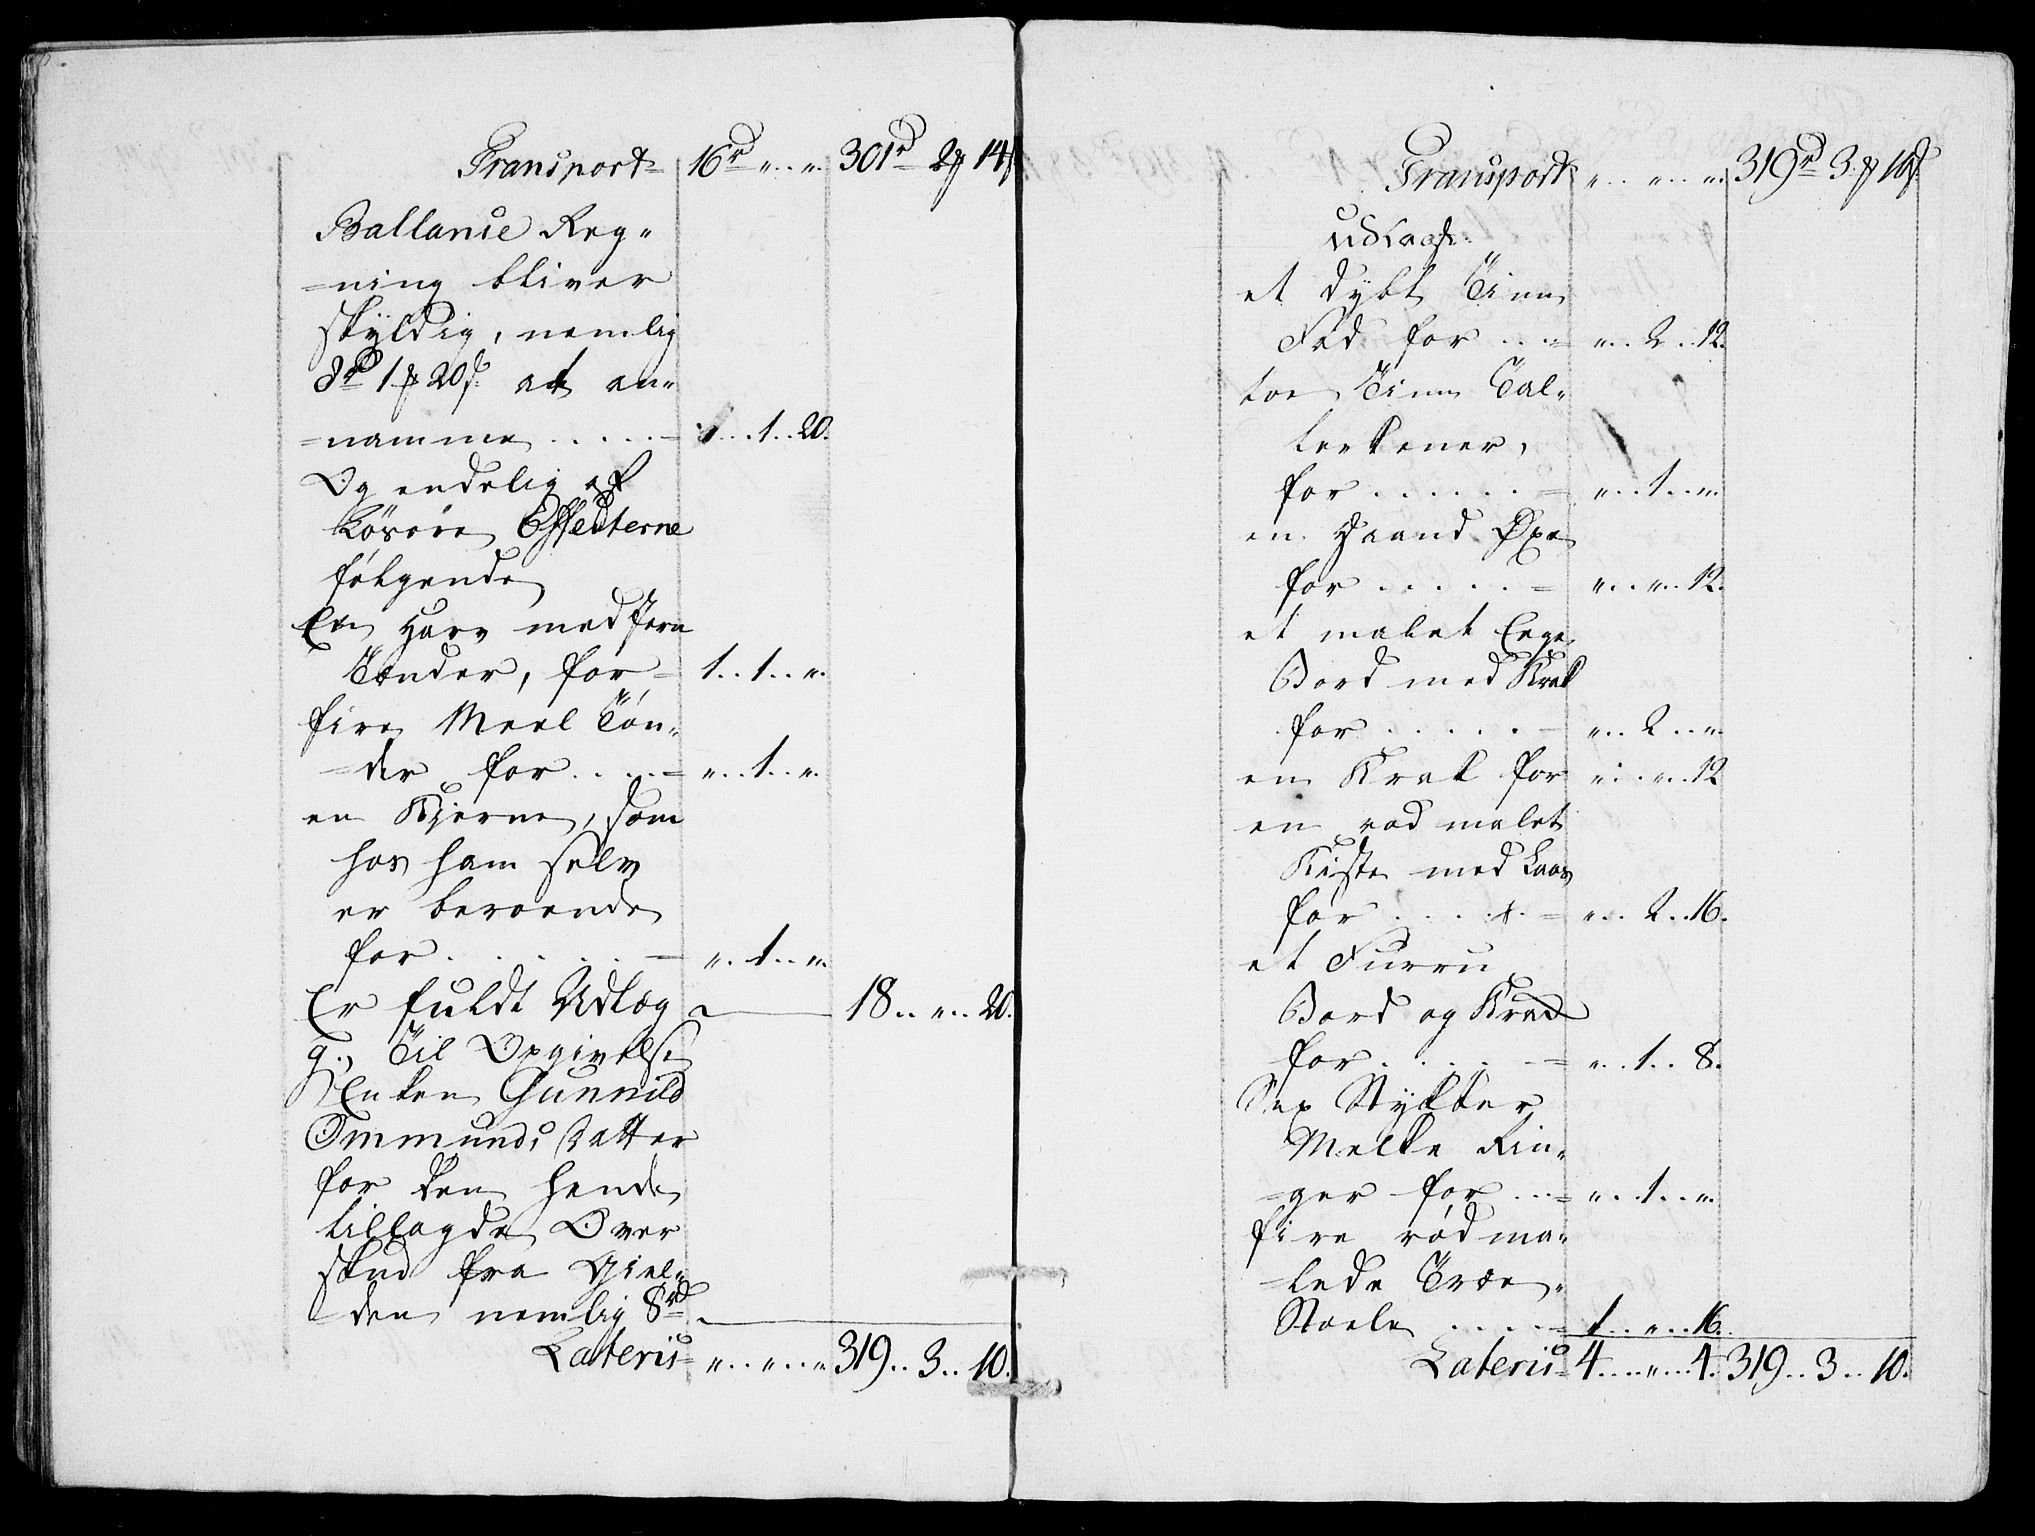 Transport 16rd „ . „ . 301rd 2 ₰ 14 s
Ballance Reg-
=ning bliver
skyldig, nemlig
d 1 ₰ 20 s: at an-
=namme . . . . . 1 . . 20.
Og endelig af
Løsøre Effecterne
følgende
En Harv med Jern
Tænder, for 1 . . 1 . . „ .
fire Meel Tøn-
=der for . . . . „ . . 1 . . „ .
en Kjerne, som
hos ham selv
er beroende
for . . . . . „ . . 1 . . „ .
Er fuldt Udlæg 18 . . „ . . 20.
g., Til Opgivelse
Enken Gunnild
Ommunds Datter
for den hende
tillagde Over
skud fra Giel-
den nemlig 8rd
Lateris „ . . „ . . „ 319 . . 3 . . 10.
Transport „ . . „ . . „ . 319rd 3 ₰ 10 s.
Udlagt.
et dybt Tinn
Fad for . . . „ . . 2 . . 12.
toe Tinn Tal-
lerkener,
for . . . . . . „ . . 1 . . „ .
en Haand Øxe
for . . . . . „ . . „ . . 12.
et malet Eege
Bord med Krak
for . . . . . „ . . 2 . . „ .
en Krak for „ . . „ . . 12
en rød malet
Kiste med Laas
for . . . . . „ . . 2 . . 16.
et Furru
Bord og Krak
for . . . . . „ . . 1 . . 8.
Sex Stykker
Melke Rin-
=ger for . . . „ . . 1 . . „ .
fire rødma-
=lede Træe-
Stoele . . . . 1 . . „ . . 16.
Lateris 4 . . . „ . . . 4. 319 . . 3 . . 10.